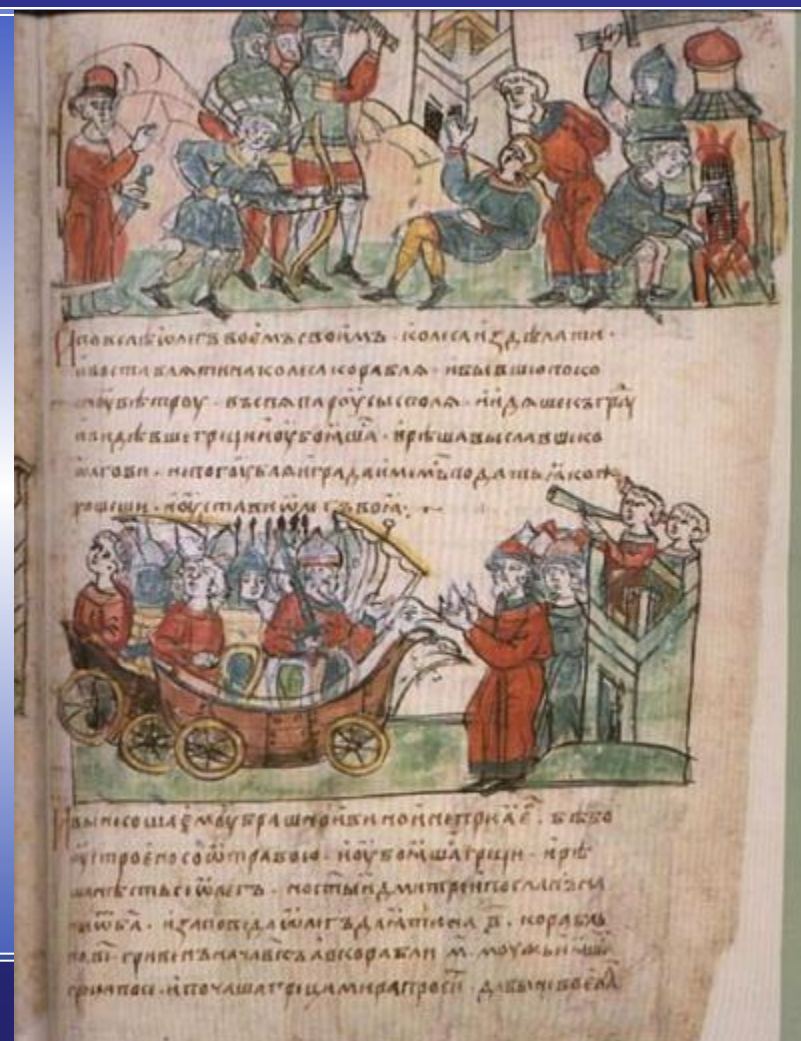 И повелѣ ѡлегъ воемъ своимъ · колеса издѣлати ·
и воставляти на колеса корабля · и бывшю поко
сноу вѣтроу · въспя пароусы с поля · и идяше къ гра
и видѣвше грѣци и оубояшася · и рѣша выславше ко
ѡлгови · не погоубляи града
хощеши · и оустави ѡлегъ воя ·
И вынесоша емоу брашно и вино и не прия е · бѣ бо
оустроено со ѿтравою · и оубояшася грѣци · и рѣ
ша нѣсть се ѡлегъ · но стыи дмитреи посланъ на
ны ѿ ба · и заповѣда ѡлегъ даяти на в҃ · корабль
по в҃і · гривенъ на чавкъ а в корабли м҃ · моужьи
грѣци по се · и почаша грѣци мира просіти · дабы не воева